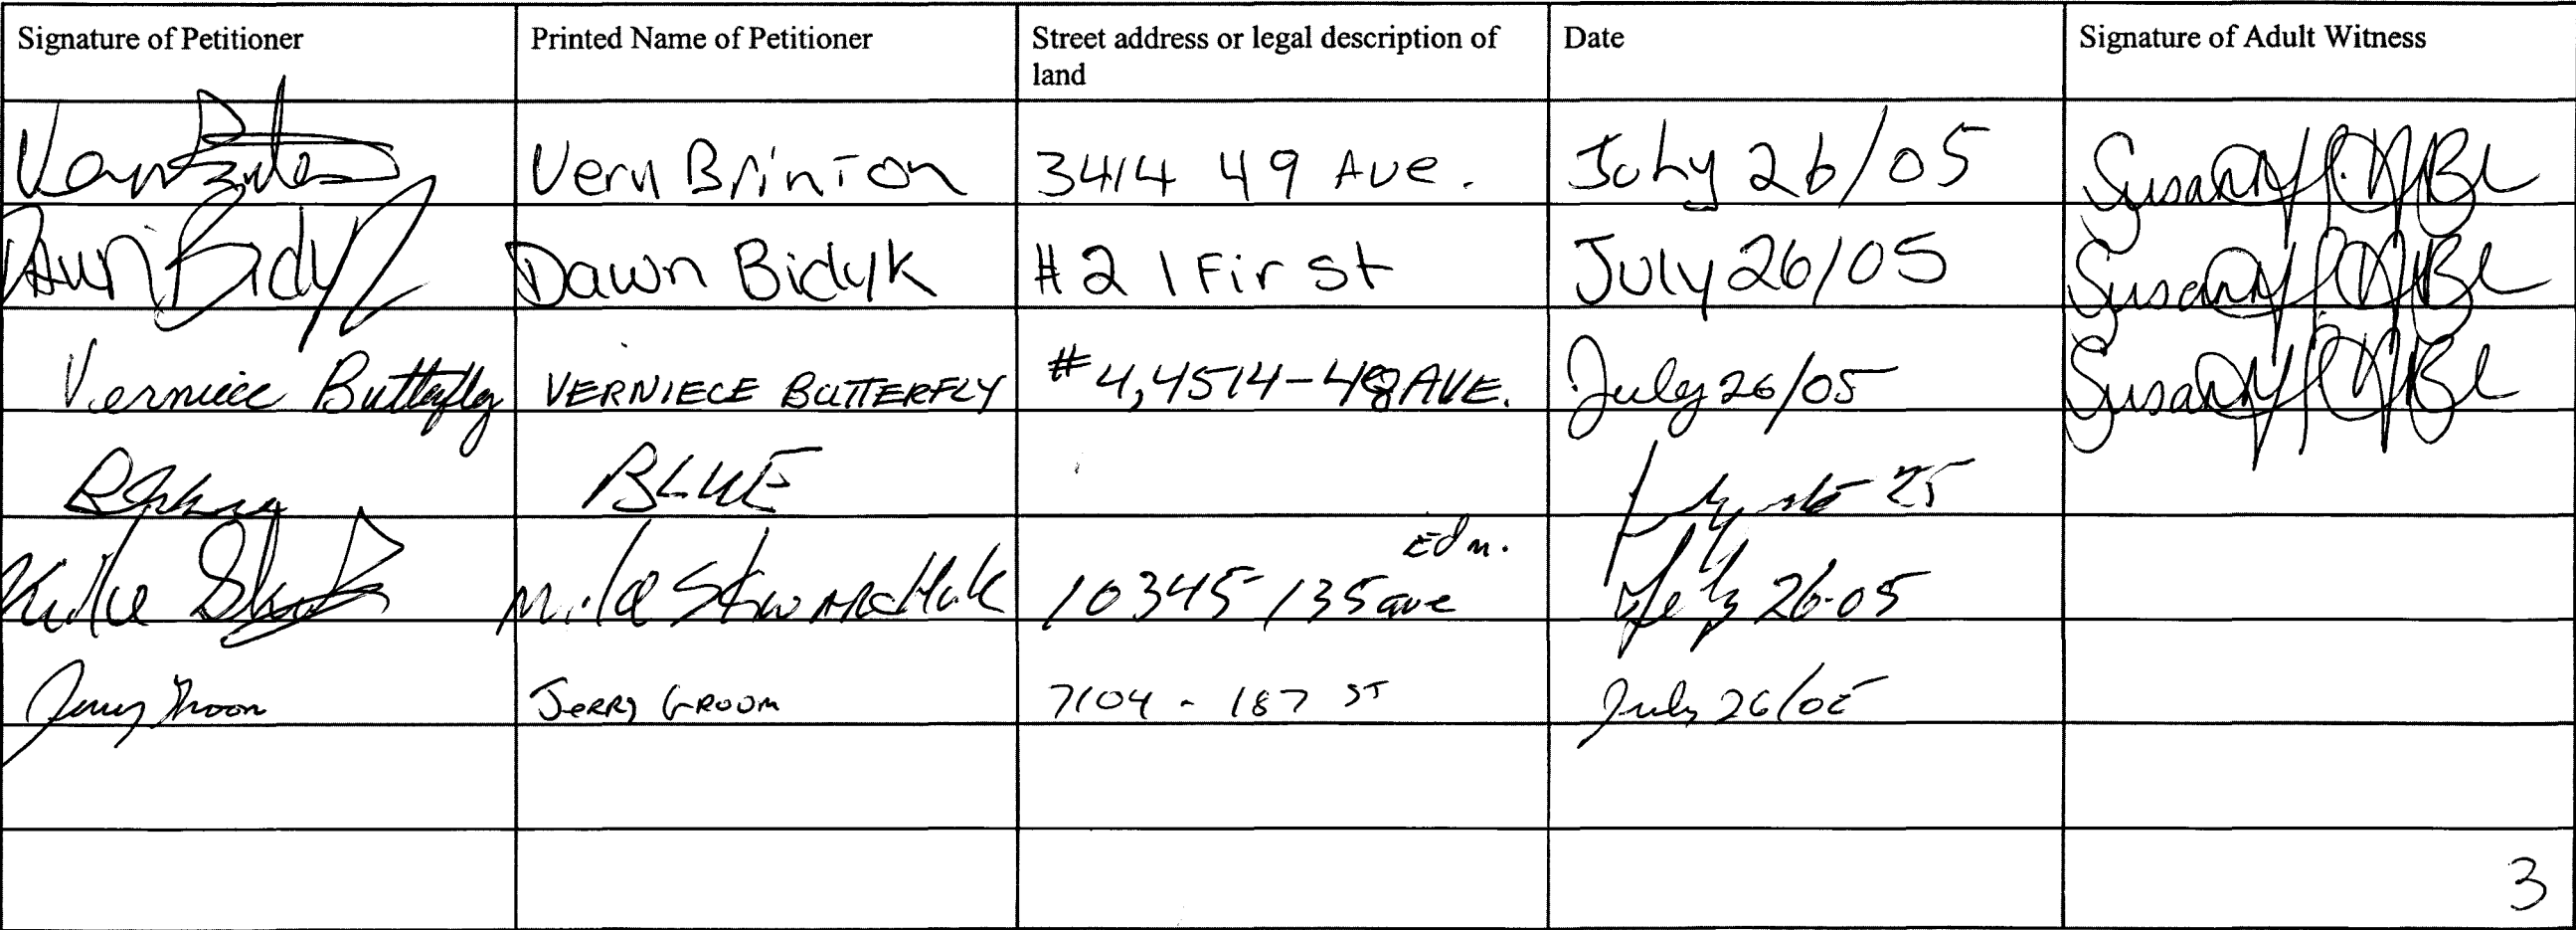 Signature of Petitioner Printed Name of Petitioner Street address or legal description of land Date Signature of Adult Witness
Vern Brinton 3414 49 Ave. July 26/05 Susan
Dawn Bidyk Dawn Bidyk #2 1 Fir St July 26/05 Susan
Verniece Butterfly VERNIECE BUTTERFLY #4, 4514-48 AVE. July 26/05 Susan
BLUE 25
Mike 10345 135 ave Edm. July 26-05
Jerry Groom JERRY GROOM 7104 - 187 ST July 26/05
3